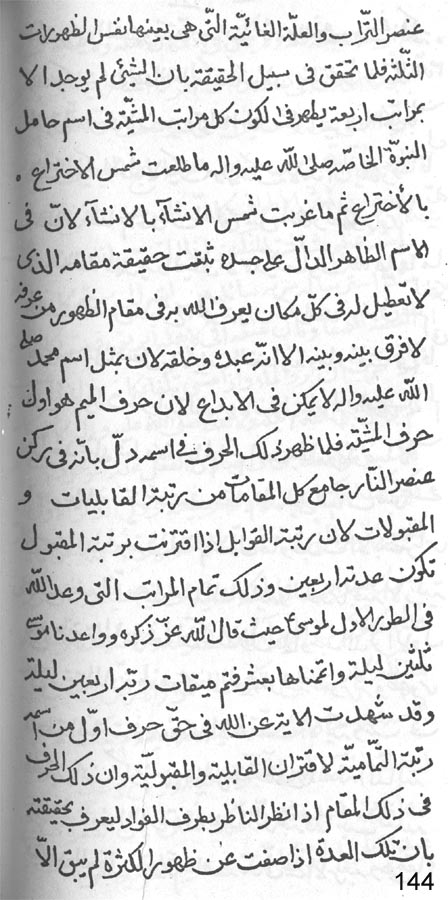 عنصر التّراب والعلّة الغائيّة الّتي هي بعينها نفس الظهورات
الثّلثة فلما تحقق في سبيل الحقيقة بان الشّيئ لم يوجد الا
بمراتب اربعة يظهر في الكون كل مراتب المشيّة في اسم حامل
النبوّة الخاصّة صلى الله عليه واله ما طلعت شمس الاختراع
بالأختراع ثم ما غربت شمس الانشآء بالانشآء لانّ في
الاسم الظاهر الدالّ على جسده ثبقت حقيقة مقامه الذي
لا تعطيل له في كلّ مكان يعرف الله به في مقام الظهور من عرفه
لا فرق بينه وبينه الا انّه عبده وخلقه لان بمثل اسم محمد صلى
الله عليه واله لا يمكن في الابداع لان حرف الميم هو اول
حرف المشيّة فلما ظهر ذلك الحرف في اسمه دلّ بانّه في ركن
عنصر النّار جامع كل المقامات من رتبة القابليات و
المقبولات لان رتبة القوابل اذا اقترنت برتبة المقبول
تكون عدته اربعين وذلك تمام المراتب التي وعد الله
في الطور الاول لموسى حيث قال الله عزّ ذكره وواعدنا موسى
ثلثين ليلة واتممناها بعشر فتم ميقات ربّه اربعين ليلة
وقد شهدت الاية عن الله في حقّ حرف اوّل من اسمه
رتبة التّماميّة لاقتران القابلية والمقبوليّة وان ذلك الحرف
في ذلك المقام اذا نظر الناظر بطرف الفواد ليعرف بحقيقته
بان تلك العدّة اذا صفت عن ظهور الكثرة لم يبق الّا
144